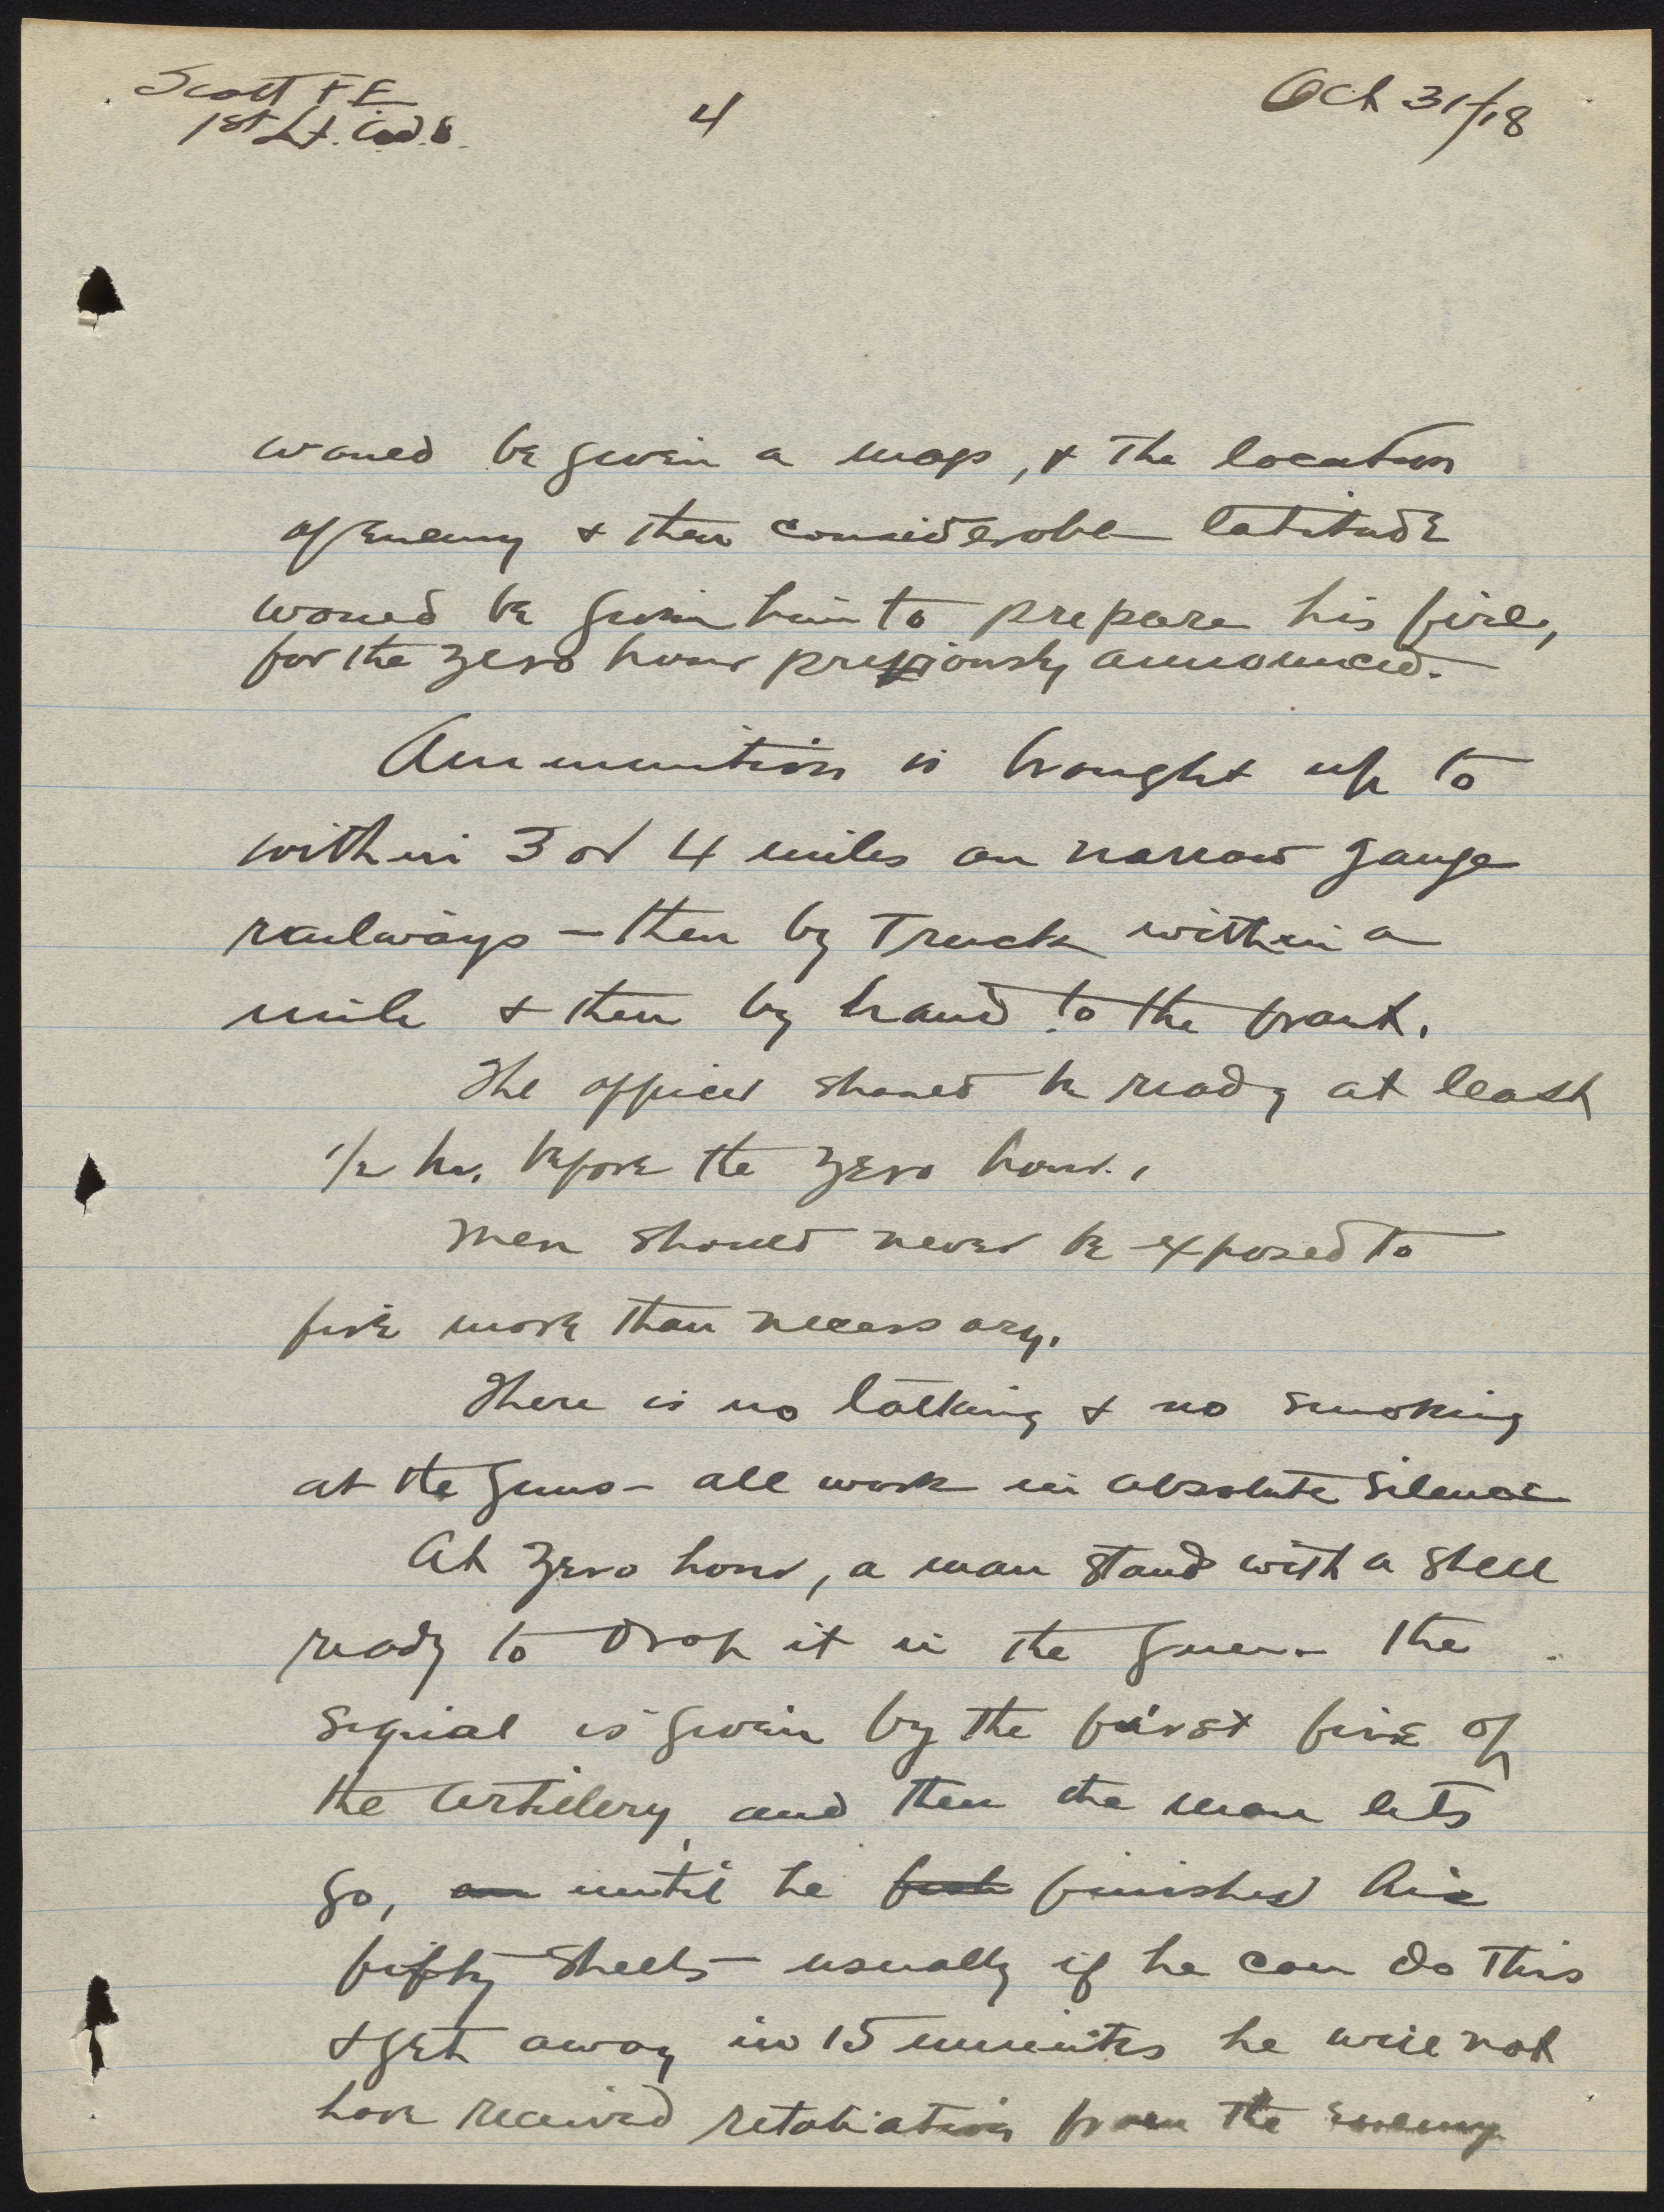 Scott F E
1st Lt. Cad. 8.
4
Oct 31/18
would be given a map, & the location
of enemy & then considerable latitude
would be given him to prepare his fire,
for the zero hour previously announced.
Ammunition is brought up to
within 3 or 4 miles on narrow gauge
railways – then by Truck within a
mile & then by hand to the front.
The officer should be ready at least
1/2 hr. before the zero hour.
Men should never be exposed to
fire more than necessary.
There is no talking & no smoking
at the guns – all work in absolute silence
At zero hour, a man stands with a shell
ready to drop it in the gun – the
signal is given by the first fire of
the artillery, and then the man lets
go, until he finished his
fifty shells – usually if he can do this
& get away in 15 minutes he will not
have received retaliation from the enemy